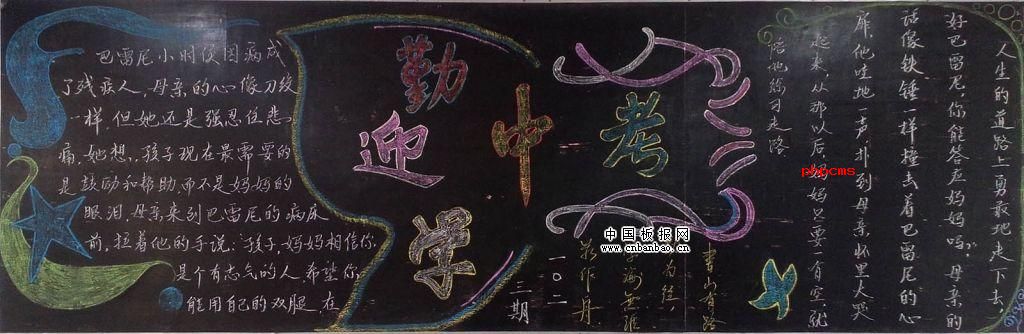 巴雷尼小时侯因病成
了残疾人,母亲的心像刀绞
一样,但她还是强忍住悲
痛,她想,孩子现在最需要的
是鼓励和帮助,而不是妈妈的
眼泪,母亲来到巴雷尼的病床
前,拉着他的手说:“孩子,妈妈相信你
是个有志气的人,希望你
能用自己的双腿,在
勤学
迎中考
人生的道路上勇敢地走下去,
好巴雷尼,你能答应妈妈吗?”母亲的
话像铁锤一样撞击着巴雷尼的心
扉,他哇地一声,扑到母亲怀里大哭
起来,从那以后,妈妈只要一有空,就
陪他练习走路
书山有路
为径,
学海无涯
作舟
一〇二
三期
phpcms
中国板报网
www.cnbanbao.cn